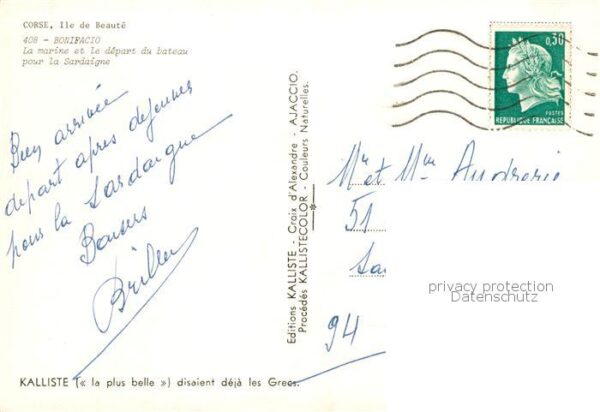 CORSE, Ile de Beauté
408 - BONIFACIO
La marine et le départ du bateau
pour la Sardaigne
Bien arrivée
départ après dejeuner
pour la Sardaigne
Baisers
0,30
POSTES
REPUBLIQUE FRANÇAISE
Editions KALLISTE - Croix d'Alexandre - AJACCIO.
Procédés KALLISTECOLOR - Couleurs Naturelles.
Mr et Mme
51
94
privacy protection
Datenschutz
KALLISTE (« la plus belle ») disaient déjà les Grecs.